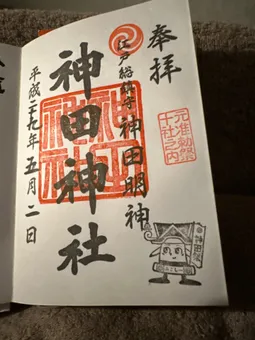 奉拝
元准勅祭
十社之内
江戸総鎮守神田明神
神田神社
平成二十九年五月二日